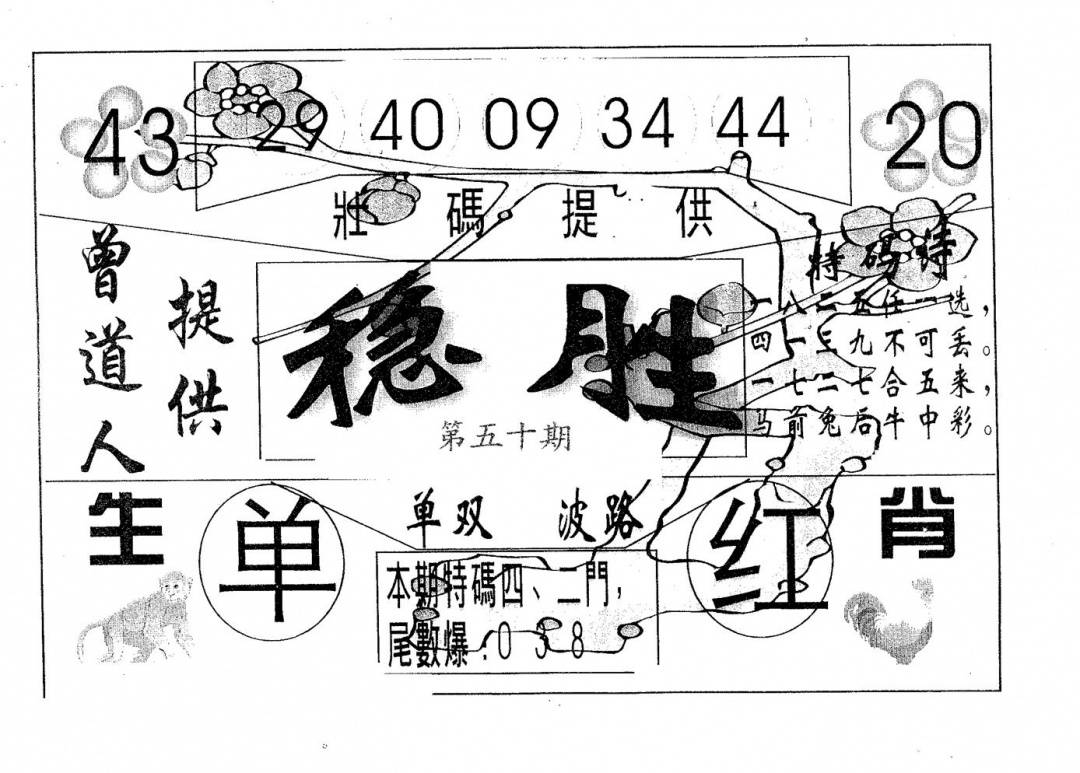 43 29 40 09 34 44 20
壯碼提供
曾道人
提供
稳胜
第五十期
特码诗
一八二五任一选，
四一三九不可丢。
一七二七合五来，
马前兔后牛中彩。
生
单
单双 波路
红
肖
本期特碼四、二門，
尾數爆：0 3 8